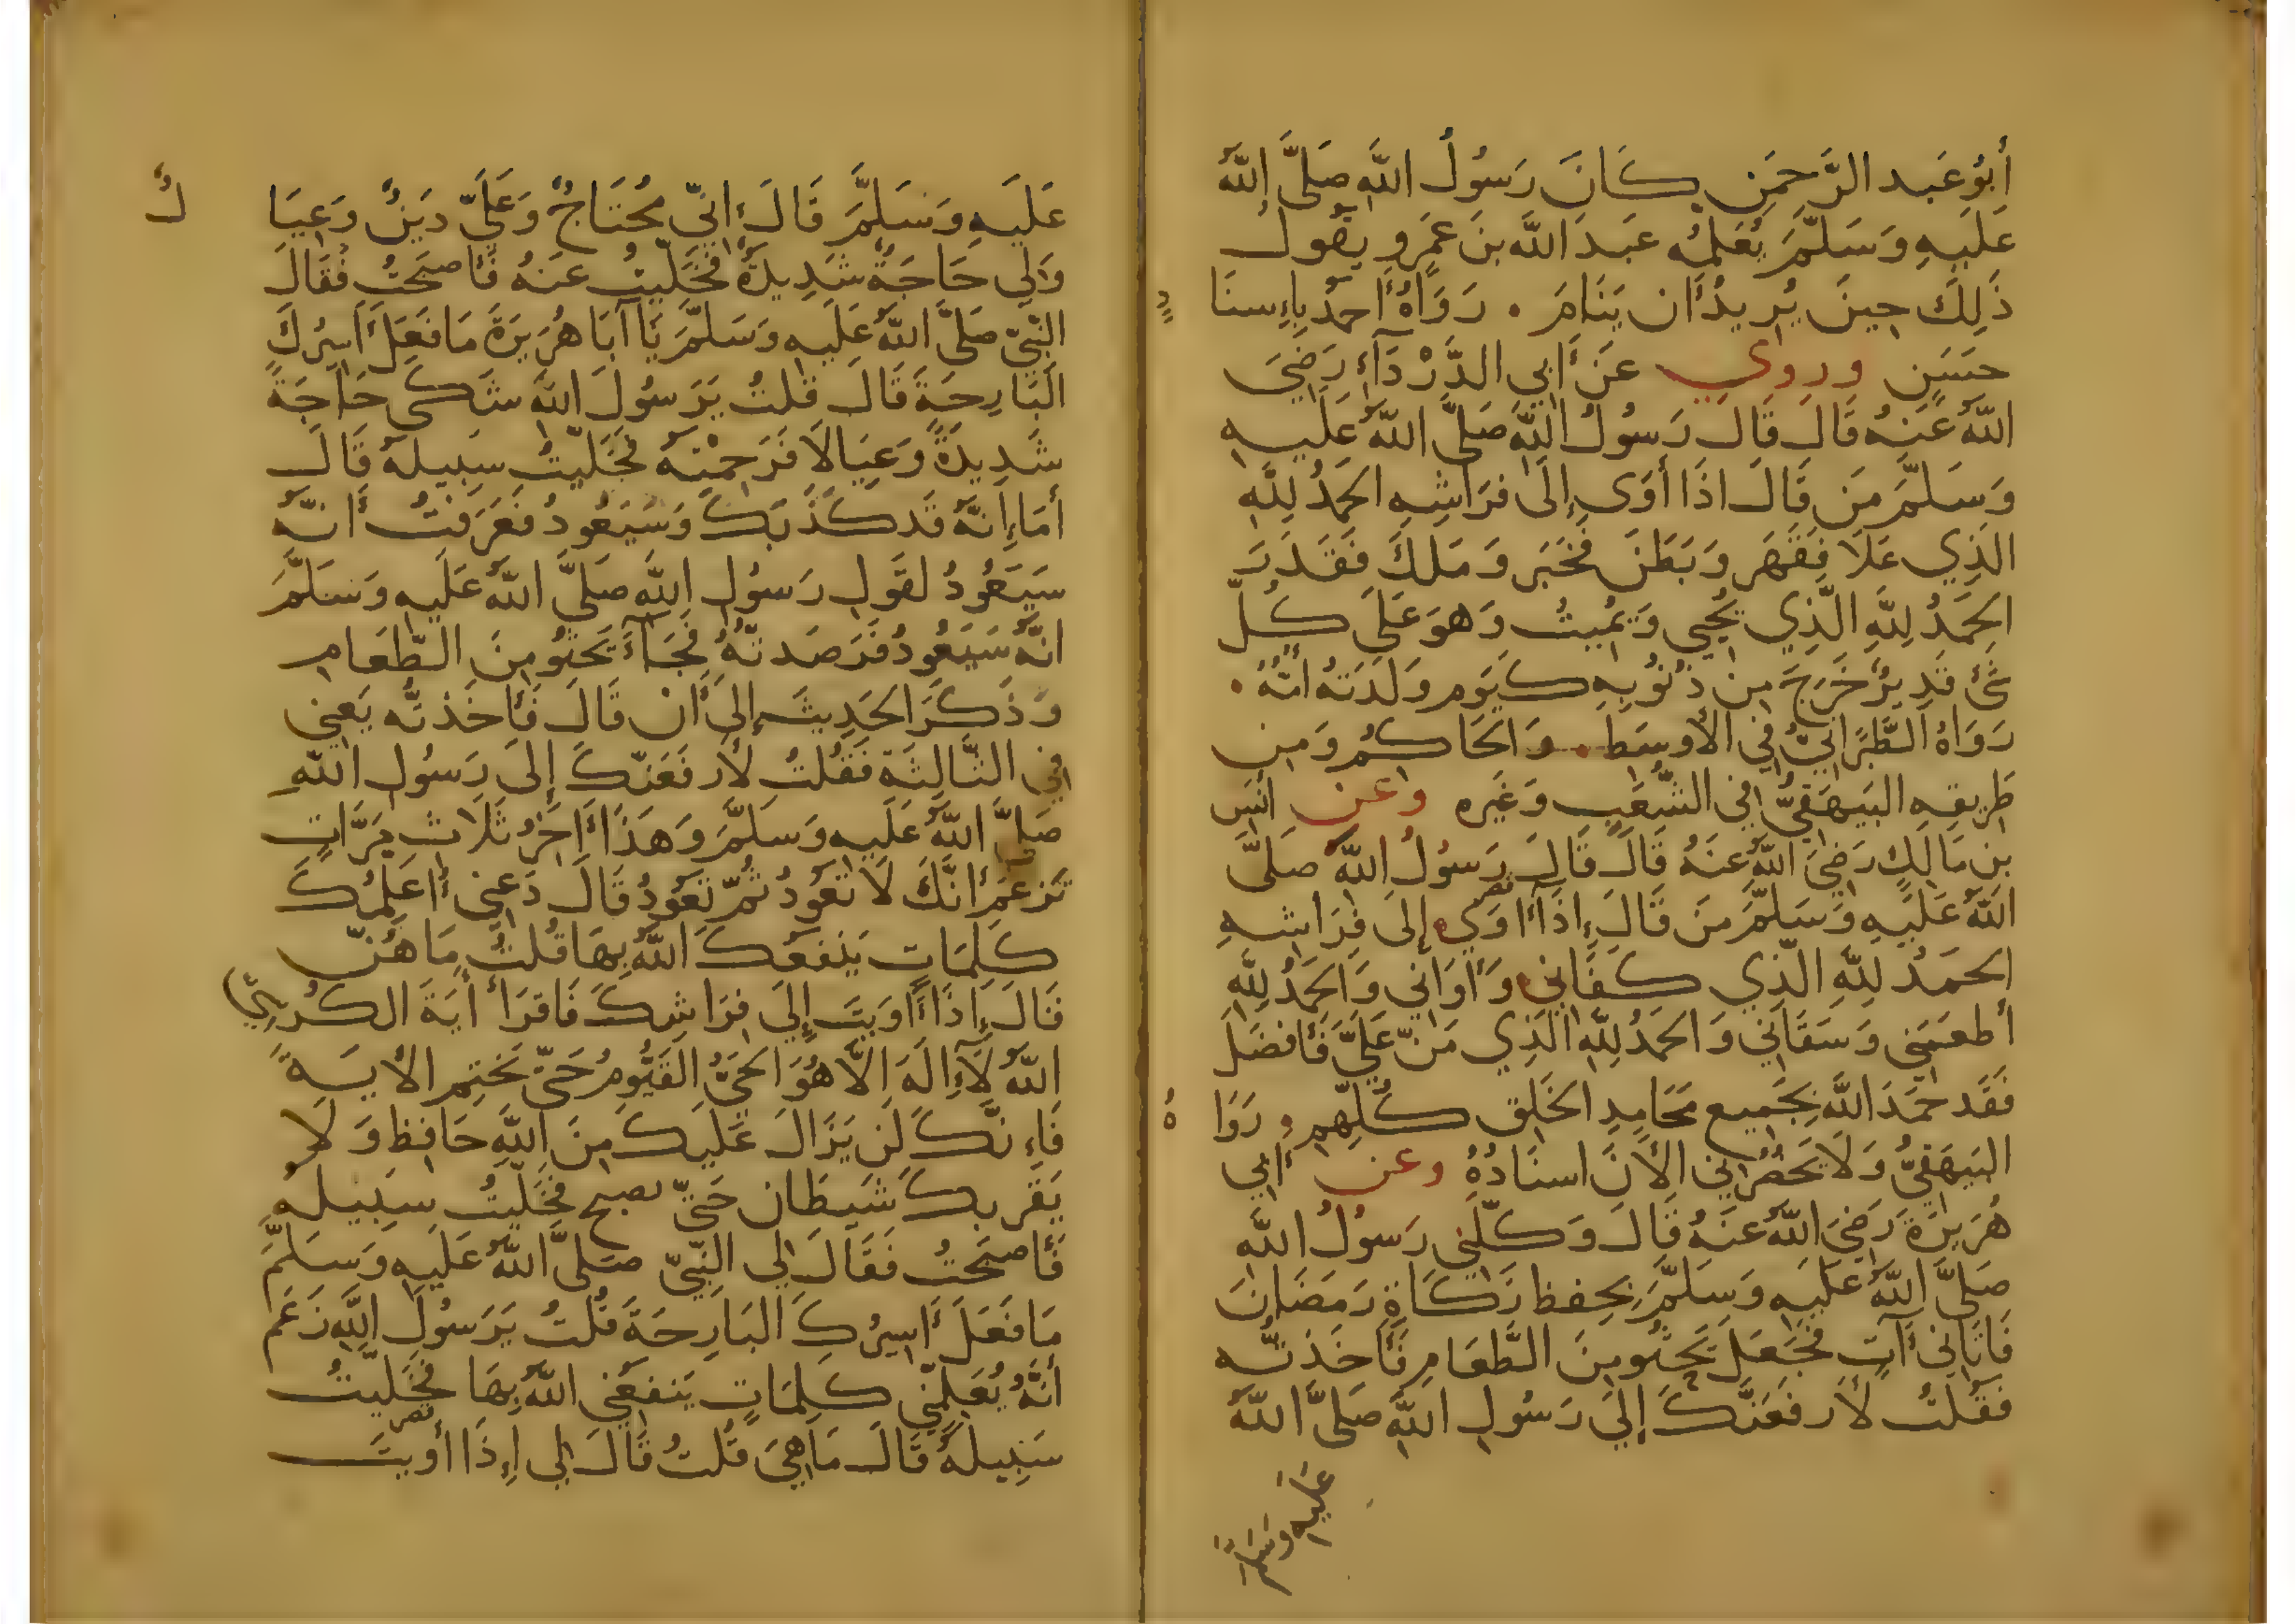 أَبُو عَبد الرَّحمَنِ كَانَ رَسُولُ اللَّهِ صَلَّى اللَّهُ
عَلَيهِ وَسَلَّمَ يُعَلِّمُه عَبدَ اللَّه بنَ عَمرٍو يقُول
ذَلِكَ حِينَ يُرِيدُ أَن يَنَامَ . رَوَاهُ أَحمدُ بِإِسنَادٍ
حسَنٍ وروي عَن أَبِي الدَّرْدَآءِ رَضِيَ
اللَّهُ عَنهُ قَالَ قَالَ رَسُولُ اللَّهِ صَلَّى اللَّهُ عَلَيهِ
وَسَلَّمَ مَن قَالَ اذَا أَوَى إِلَى فِرَاشِهِ الحَمدُ لِلَّهِ
الَّذِي عَلَا فَقَهَر وَبَطَنَ فَخَبَر وَمَلَكَ فَقَدَرَ
الحَمدُ لِلَّهِ الَّذِي يُحيِي وَيُمِيتُ وَهوَ عَلَى كُلِّ
شَئ قَدِيرٌ خَرَجَ مِن ذُنُوبِهِ كَيَومِ وَلَدَتهُ امُّهُ .
رَوَاهُ الطَّبَرَانِيُّ فِي الأَوسَطِ . وَالحَاكمُ وَمِن
طَرِيقِهِ البَيهَقِيُّ فِي الشُّعَبِ وَغَيرِه وعن انَس
بنِ مَالِكٍ رَضِيَ اللَّهُ عَنهُ قَالَ قَالَ رَسُولُ اللَّهِ صَلَّى
اللَّهُ عَلَيهِ وَسَلَّمَ مَن قَالَ إِذَا أَوَى إِلَى فِرَاشِهِ
الحمَدُ لِلَّهِ الَّذِي كَفَانِي وَأَوَانِي وَالحَمدُ لِلَّهِ
أطعَمَنِي وَسَقَانِي وَالحَمدُ لِلَّهِ الَّذِي مَنَّ عَلَيَّ فَأَفضَلَ
فَقَد حَمَدَ اللَّهَ بِجَمِيع مَحَامِدِ الخَلق كُلِّهِم . رَوَاهُ
البَيهَقِيُّ وَلَا يَحضُرُنِي الأَنَ اسنَادُهُ وعن أَبِي
هُرَيرَةَ رَضِيَ اللَّهُ عَنهُ قَالَ وَكَّلَنِي رَسُولُ اللَّه
صَلَّى اللَّهُ عَلَيهِ وَسَلَّمَ بِحِفظ زَكَاةِ رَمَضَانَ
فَاتَانِي أَتٍ فَجَعَلَ يَحثُو مِنَ الطَّعَامِ فَأَخَذتُه
فَقُلتُ لأَرفَعَنَّكَ إِلَى رَسُولِ اللَّهِ صَلَّى اللَّهُ
عَلَيهِ وَسَلَّمَ
عَلَيهِ وَسَلَّمَ قَالَ إِنِّي مُحتَاجٌ وَعَلَيَّ دَينٌ وَعِيَالٌ
وَلِي حَاجَةٌ شَدِيدَةٌ فَخَلَّيتُ عَنهُ فَأَصبَحتُ فَقَالَ
النَّبِيّ صَلَّى اللَّهُ عَلَيهِ وَسَلَّمَ يَا أَبَا هُرَيرَةَ مَا فَعَلَ أَسِيرُكَ
البَارِحَةَ قَالَ قلتُ يَرَسُولَ اللَّهِ شَكَى حَاجَةً
شَدِيدَةً وَعِيَالًا فَرَحِمْتُه فَخَلَّيتُ سَبِيلهُ قَالَ
أَمَا إِنَّهُ قَد كَذَبَكَ وَسَيَعُودُ فَعَرَفتُ أَنَّهُ
سَيَعُودُ لقَولِ رَسُولِ اللَّهِ صَلَّى اللَّهُ عَلَيهِ وَسَلَّمَ
انَّهُ سَيَعُودُ فَرَصَدتُّهُ فَجَآءَ يَحثُو مِنَ الطَّعَامِ
وَذَكَرَ الحَدِيثَ إِلَى أَن قَالَ فَأَخَذتُه يَعنِي
فِي الثَّالِثَةِ فَقُلتُ لأَرفَعَنَّكَ إِلَى رَسُولِ اللَّهِ
صَلَّى اللَّهُ عَلَيهِ وَسَلَّمَ وَهَذَا أَخَرُ ثَلَاث مَرَّاتٍ
تَزعُمَ أَنَّكَ لَا تَعُودُ ثُمَّ تَعُودُ قَالَ دَعنِي أُعَلِّمُكَ
كَلِمَاتٍ يَنفَعُكَ اللَّهُ بِهَا قُلتُ مَا هُنَّ
قَالَ إِذَا أَوَيتَ إِلَى فِرَاشِكَ فَاقرَأ أَيَةَ الكُرسِيِّ
اللَّهُ لَآإِلَهَ الَّا هُوَ الحَيُّ القَيُّومُ حَتَّى تَختِم الأَيَةَ
فَإِنَّكَ لَن يَزَالَ عَلَيكَ مِنَ اللَّهِ حَافِظ وَلَا
يَقربكَ شَيطَان حَتَّى تصبح فَخَلَّيتُ سَبِيلهُ
فَأَصبَحتُ فَقَالَ لِي النَّبِيّ صَلَّى اللَّهُ عَلَيهِ وَسَلَّمَ
مَا فَعَلَ أَسِيرُكَ البَارِحَةَ قُلتُ يَرَسُولَ اللَّهِ زَعَم
أَنَّهُ يُعَلِّمُنِي كَلِمَاتٍ يَنفَعُنِي اللَّهُ بِهَا فَخَلَّيتُ
سَبِيلَهُ قَالَ مَا هِيَ قُلتُ قَالَ لِي إِذَا أَويتَ